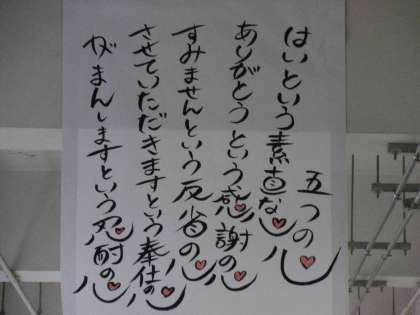 五つの心
はいという素直な心
ありがとうという感謝の心
すみませんという反省の心
させていただきますという奉仕の心
がまんしますという忍耐の心